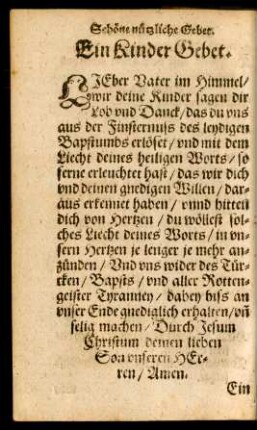 Schöne nützliche Gebet.
Ein Kinder Gebet.
LIEber Vater im Himmel/
wir deine Kinder sagen dir
Lob vnd Danck/ das du vns
aus der Finsternuss des leydigen
Bapstumbs erlöset/ vnd mit dem
Liecht deines heiligen Worts/ so
ferne erleuchtet hast/ das wir dich
vnd deinen gnedigen Willen/ dar-
aus erkennet haben/ vnnd bitten
dich von Hertzen/ du wöllest sol-
ches Liecht deines Worts/ in vn-
sern Hertzen je lenger je mehr an-
zünden/ Vnd vns wider des Tür-
cken/ Bapsts/ vnd aller Rotten-
geister Tyranney/ dabey biss an
vnser Ende gnediglich erhalten/ vñ
selig machen/ Durch Jesum
Christum deinen lieben
Son vnseren HEr-
ren/ Amen.
Ein